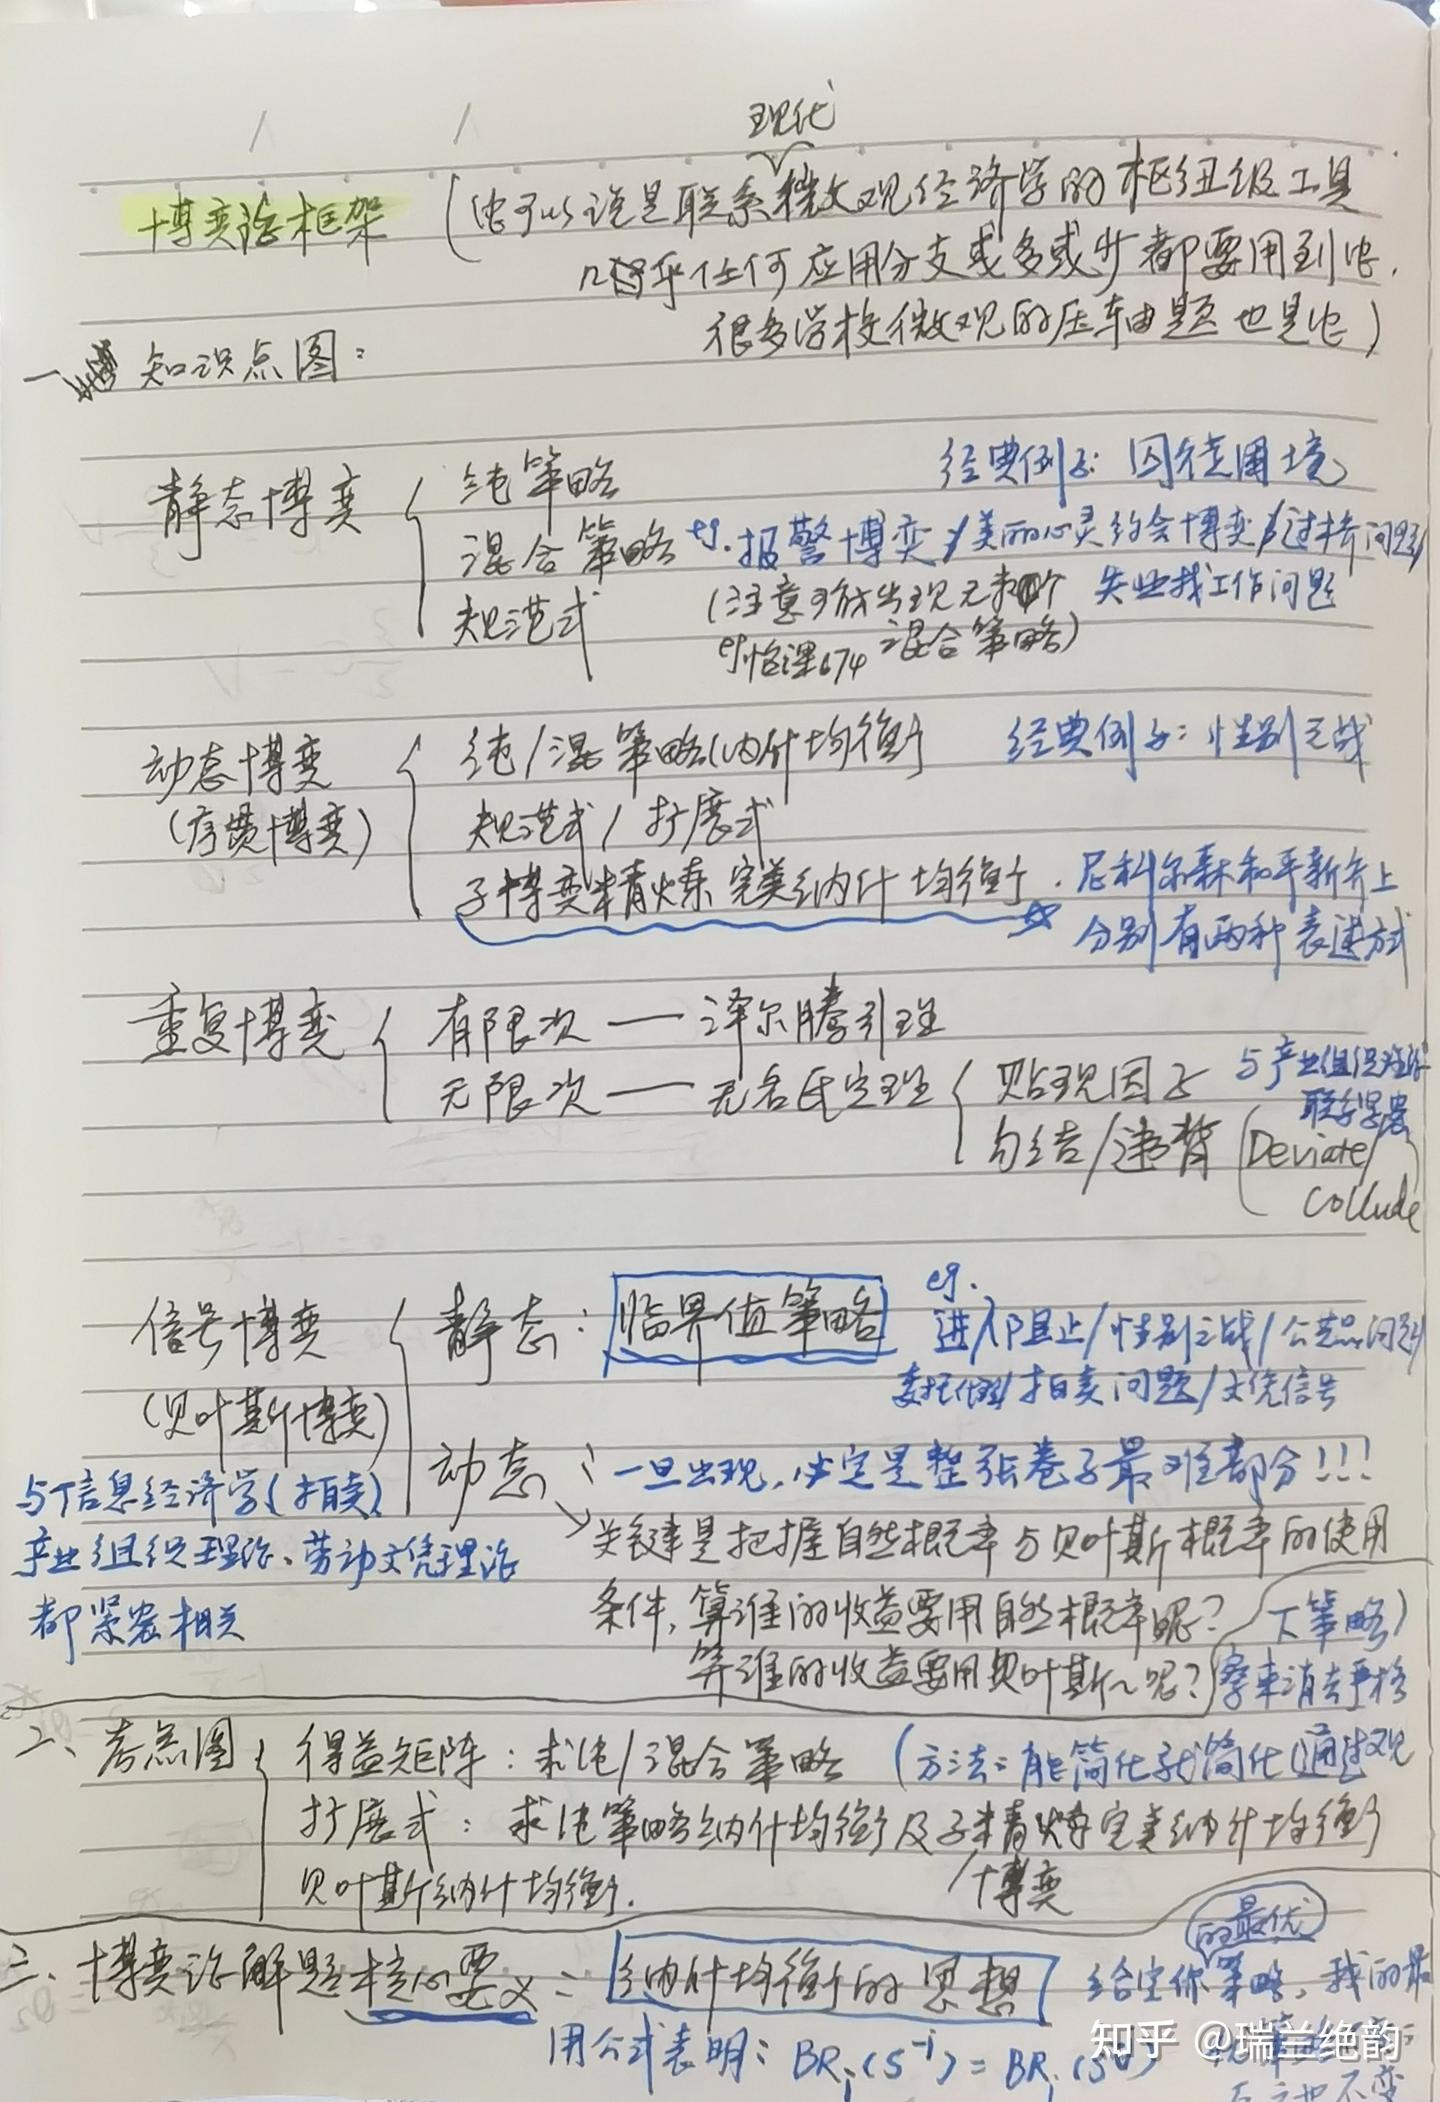 现代
博弈论框架 (它可以说是联系微观经济学的枢纽级工具
几乎任何应用分支或多或少都要用到它.
很多学校微观的压轴题也是它)
一、知识点图:
静态博弈 { 纯策略 经典例子: 囚徒困境
混合策略 eg. 报警博弈/美丽心灵约会博弈/过桥问题/
规范式 (注意可能出现无数个 失业找工作问题
eg 怡课674 混合策略)
动态博弈 { 纯/混策略(纳什均衡) 经典例子: 性别之战
(序贯博弈) 规范式/扩展式
子博弈精炼完美纳什均衡. 尼科尔森和平新乔上
分别有两种表述方式
重复博弈 { 有限次 — 泽尔腾引理
无限次 — 无名氏定理 { 贴现因子 与产业组织理论
联系紧密
勾结/违背 (Deviate/
Collude
信号博弈 { 静态: 临界值策略 eg.
进入阻止/性别之战/公共品问题/
(贝叶斯博弈) 委托代理/拍卖问题/文凭信号
动态: 一旦出现,必定是整张卷子最难部分!!!
与信息经济学(拍卖)、
产业组织理论、劳动文凭理论
都紧密相关
关键是把握自然概率与贝叶斯概率的使用
条件,算谁的收益要用自然概率呢?
算谁的收益要用贝叶斯~呢?
下策略)
察来消去严格
二、考点图 { 得益矩阵: 求纯/混合策略 (方法: 能简化就简化(通过观
扩展式: 求纯策略纳什均衡及子精炼完美纳什均衡
博弈
贝叶斯纳什均衡.
三、博弈论解题核心要义: 纳什均衡的思想 给定你的最优策略,我的最
用公式表明: BRᵢ(S⁻ⁱ) = BRᵢ(S
反之也不变
知乎 @瑞兰绝韵